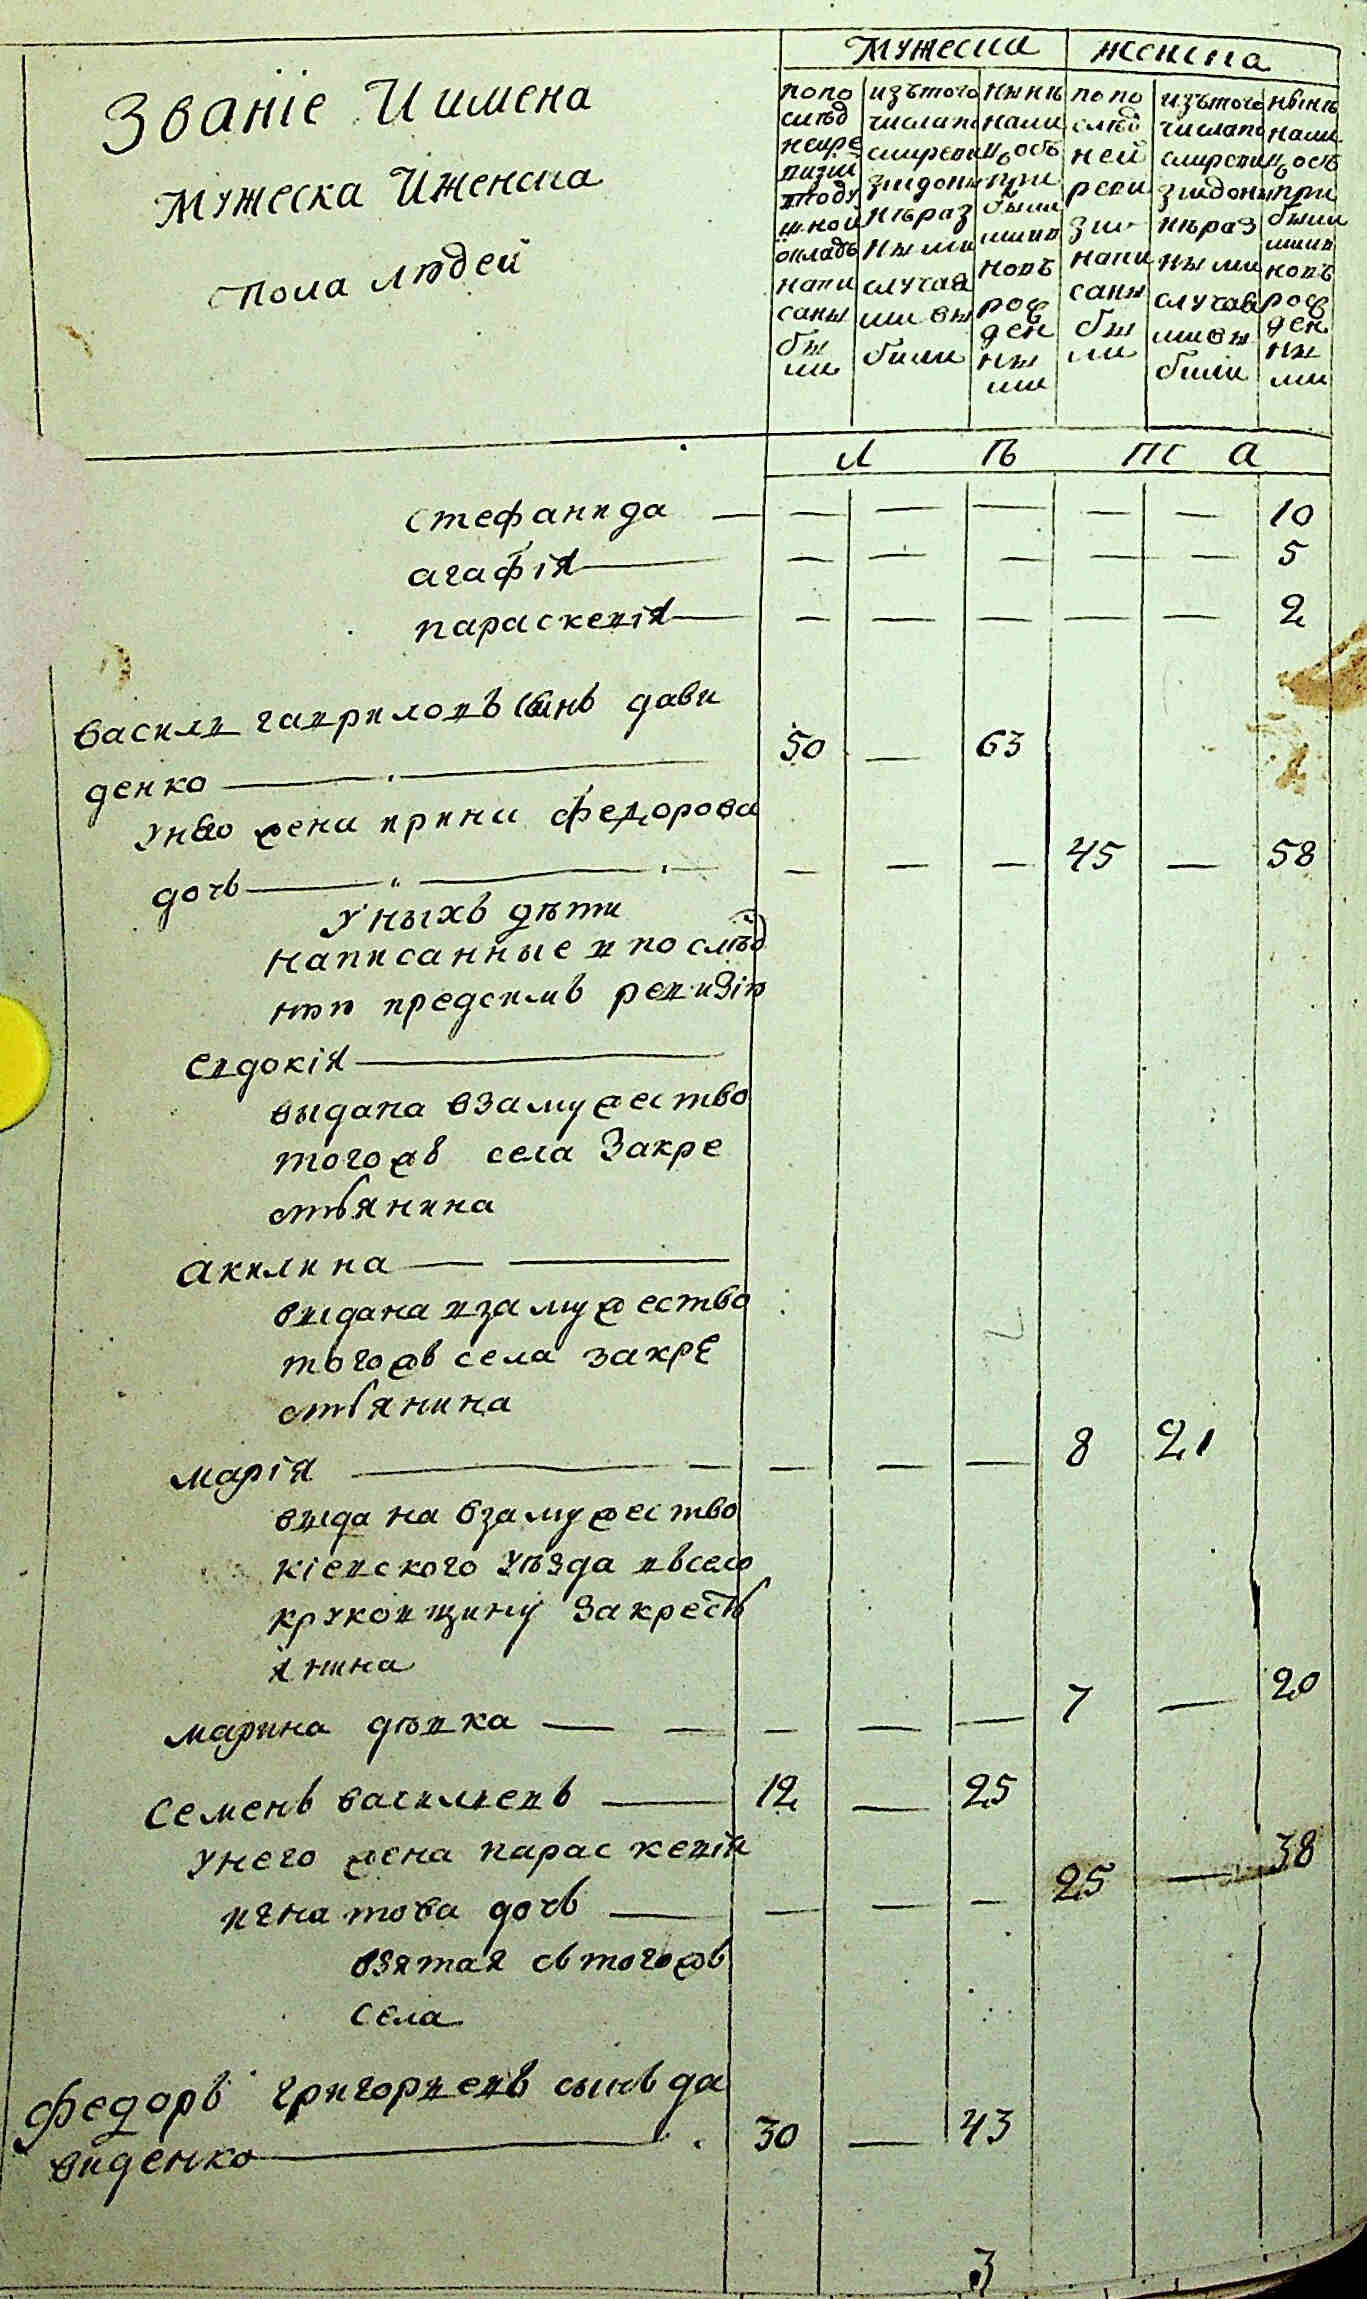 Званіе И имена
Мужеска Иженска
пола людей
Мужеска
женска
попо
след
ней ре
визии
вподу
шной
окладъ
напи
саны
бы
ли
изътого
числапо
слиреви
зиидоны
нѣраз
ными
случая
ми вы
были
нынѣ
нали
цость
при
былы
ми и в
новъ
рож
ден
ны
ми
по по
слѣд
ней
реви
зіи
напи
саны
бы
ли
изътого
числапо
слиреви
зиидоны
нѣраз
ными
случая
ми вы
были
нынѣ
нали
цость
при
былы
ми и в
новъ
рож
ден
ны
ми
Л ѣ т а
стефанида — — — — — — 10
агафія — — — — — — 5
параскевія — — — — — — 2
василь гавриловъ сынъ дави
денко — 50 — 63
Унего жена ирина федорова
дочь — — — — 45 — 58
У ныхъ дѣти
написанные в по слѣд
нюю предсимъ ревизію
евдокія —
выдана взамужество
тогожъ села Закре
стьянина
акилина — —
выдана взамужество
тогожъ села закре
стьянина
марія — — — — — 8 21
выдана взамужество
кіевского уѣзда въсело
круковщину Закресть
янина
марина дѣвка — — — — — 7 — 20
Семенъ василиевъ — 12 — 25
Унего жена параскевія
игнатова дочь — — — — 25 — 38
взятая съ тогожъ
села
Федоръ григориевъ сынъ да
виденко — 30 — 43
3